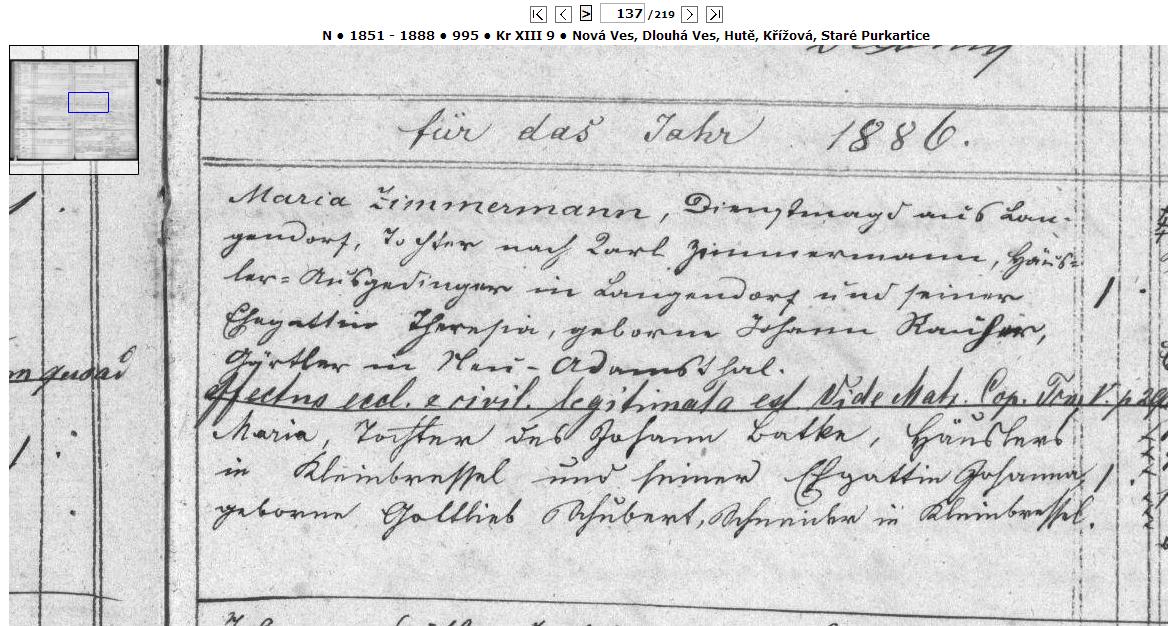 137 /219
N ● 1851 - 1888 ● 995 ● Kr XIII 9 ● Nová Ves, Dlouhá Ves, Hutě, Křížová, Staré Purkartice
für das Jahr 1886.
Maria Zimmermann, Dienstmagd aus Lan-
gendorf, Tochter nach Karl Zimmermann, Häus-
ler-Ausgedinger in Langendorf und seiner
Ehegattin Theresia, geborne Johann
Gärtler in Neu-Adamsthal.
effectus eccl. e civil. legitimata est Vide Matr. Cop.
Maria, Tochter des Johann Latke, Häuslers
in Kleinbressel und seiner Ehgattin Johanna,
geborne Gottlieb Schubert, Schneider in Kleinbressel.